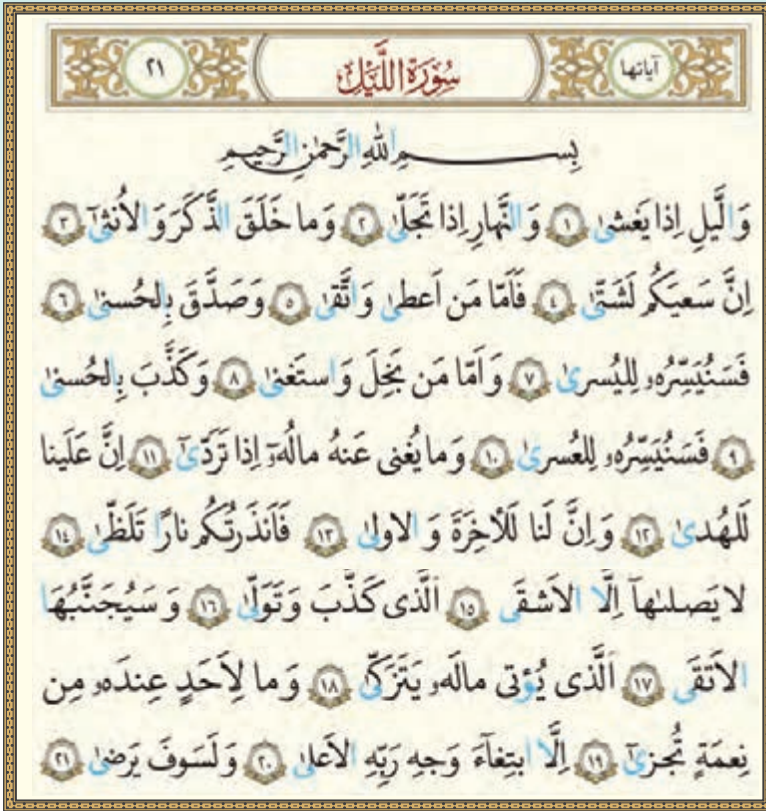 آیاتها سُورَةُ اللَّيْلِ ٢١
بِسمِ اللهِ الرَّحمٰنِ الرَّحيمِ
وَ الَّيلِ اِذا يَغشىٰ ١ وَ النَّهارِ اِذا تَجَلّىٰ ٢ وَ ما خَلَقَ الذَّكَرَ وَ الاُنثىٰٓ ٣
اِنَّ سَعيَكُم لَشَتّىٰ ٤ فَاَمّا مَن اَعطىٰ وَ اتَّقىٰ ٥ وَ صَدَّقَ بِالحُسنىٰ ٦
فَسَنُيَسِّرُهو لِليُسرىٰ ٧ وَ اَمّا مَن بَخِلَ وَ استَغنىٰ ٨ وَ كَذَّبَ بِالحُسنىٰ
٩ فَسَنُيَسِّرُهو لِلعُسرىٰ ١٠ وَ ما يُغنى عَنهُ مالُهوٓ اِذا تَرَدّىٰٓ ١١ اِنَّ عَلَينا
لَلهُدىٰ ١٢ وَ اِنَّ لَنا لَلأخِرَةَ وَ الاولىٰ ١٣ فَاَنذَرتُكُم نارًا تَلَظّىٰ ١٤
لا يَصلىٰهآ اِلَّا الاَشقَى ١٥ اَلَّذى كَذَّبَ وَ تَوَلّىٰ ١٦ وَ سَيُجَنَّبُهَا
الاَتقَى ١٧ اَلَّذى يُؤتى مالَهو يَتَزَكّىٰ ١٨ وَ ما لِاَحَدٍ عِندَهو مِن
نِعمَةٍ تُجزىٰٓ ١٩ اِلَّا ابتِغآءَ وَجهِ رَبِّهِ الاَعلىٰ ٢٠ وَ لَسَوفَ يَرضىٰ ٢١